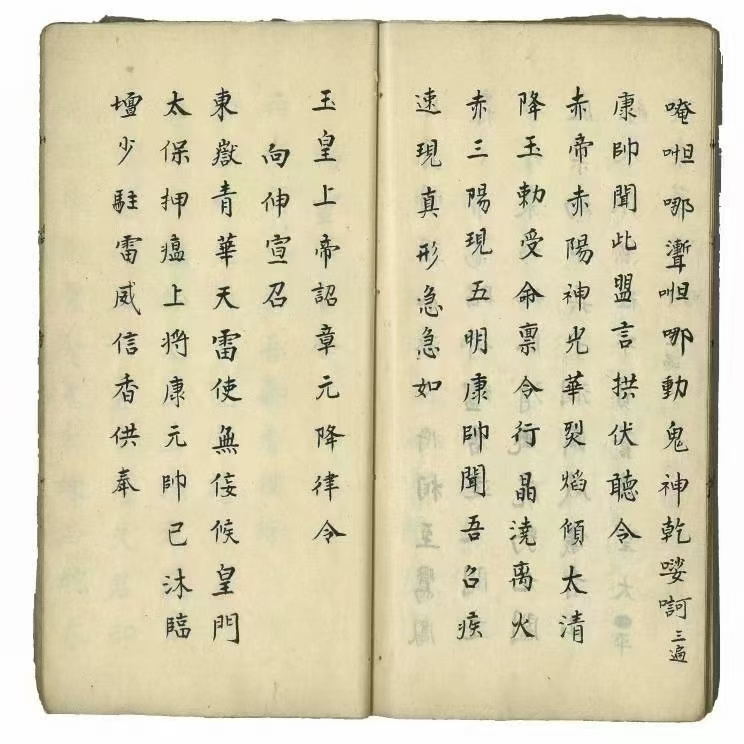 唵呾哪灊呾哪動鬼神乾娑訶三遍
康帥聞此盟言拱伏聽令
赤帝赤陽神光華烈焰傾太清
降玉勅受命禀令行晶澆离火
赤三陽現五明康帥聞吾召疾
速現真形急急如
玉皇上帝詔章元降律令
向伸宣召
東嶽青華天雷使無佞候皇門
太保押瘟上將康元帥已沐臨
壇少駐雷威信香供奉